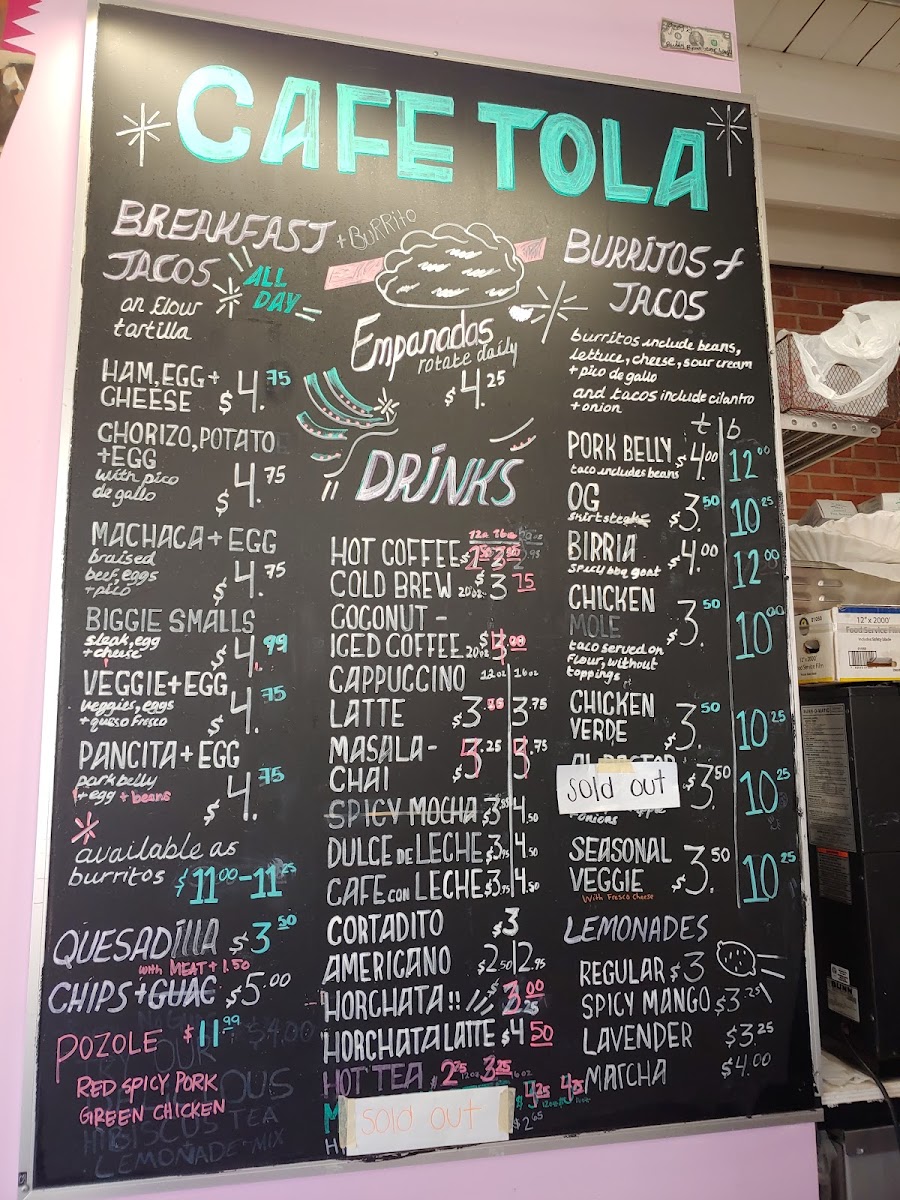 CAFE TOLA
BREAKFAST
TACOS
+ BURRITO
ALL
DAY
on flour
tartilla
HAM, EGG +
CHEESE $4.75
CHORIZO, POTATO
+ EGG
with pico
de gallo $4.75
MACHACA + EGG
braised
beef, eggs
+ pico $4.75
BIGGIE SMALLS
steak, egg
+ cheese $4.99
VEGGIE + EGG
veggies, eggs
+ queso fresco $4.75
PANCITA + EGG
pork belly
+ egg + beans $4.75
* available as
burritos $11.00-11.25
QUESADILLA $3.50
with MEAT + 1.50
CHIPS + GUAC $5.00
POZOLE $11.99
RED SPICY PORK
GREEN CHICKEN
HIBISCUS TEA
LEMONADE MIX
Empanadas
rotate daily
$4.25
DRINKS
HOT COFFEE
COLD BREW 20oz. $3.75
COCONUT -
ICED COFFEE 20oz
CAPPUCCINO 12oz 16oz
LATTE $3.25 3.75
MASALA -
CHAI $3.25 3.75
SPICY MOCHA
DULCE DE LECHE $3.75 4.50
CAFE CON LECHE $3.75 4.50
CORTADITO $3
AMERICANO $2.50 2.95
HORCHATA!!
HORCHATA LATTE $4.50
HOT TEA $2.25 12oz 3.25 16oz
4.25 4.75
sold out
$2.65
BURRITOS +
TACOS
burritos include beans,
lettuce, cheese, sour cream
+ pico de gallo
and tacos include cilantro
+ onion
t b
PORK BELLY $4.00 12.00
taco includes beans
OG $3.50 10.25
skirt steak
BIRRIA $4.00 12.00
spicy bbq goat
CHICKEN
MOLE $3.50 10.00
taco served on
flour, without
toppings
CHICKEN
VERDE $3.50 10.25
AL PASTOR
sold out $3.50 10.25
onions
SEASONAL
VEGGIE $3.50 10.25
With Fresco Cheese
LEMONADES
REGULAR $3
SPICY MANGO $3.25
LAVENDER $3.25
MATCHA $4.00
12" x 2000'
Food Service Film